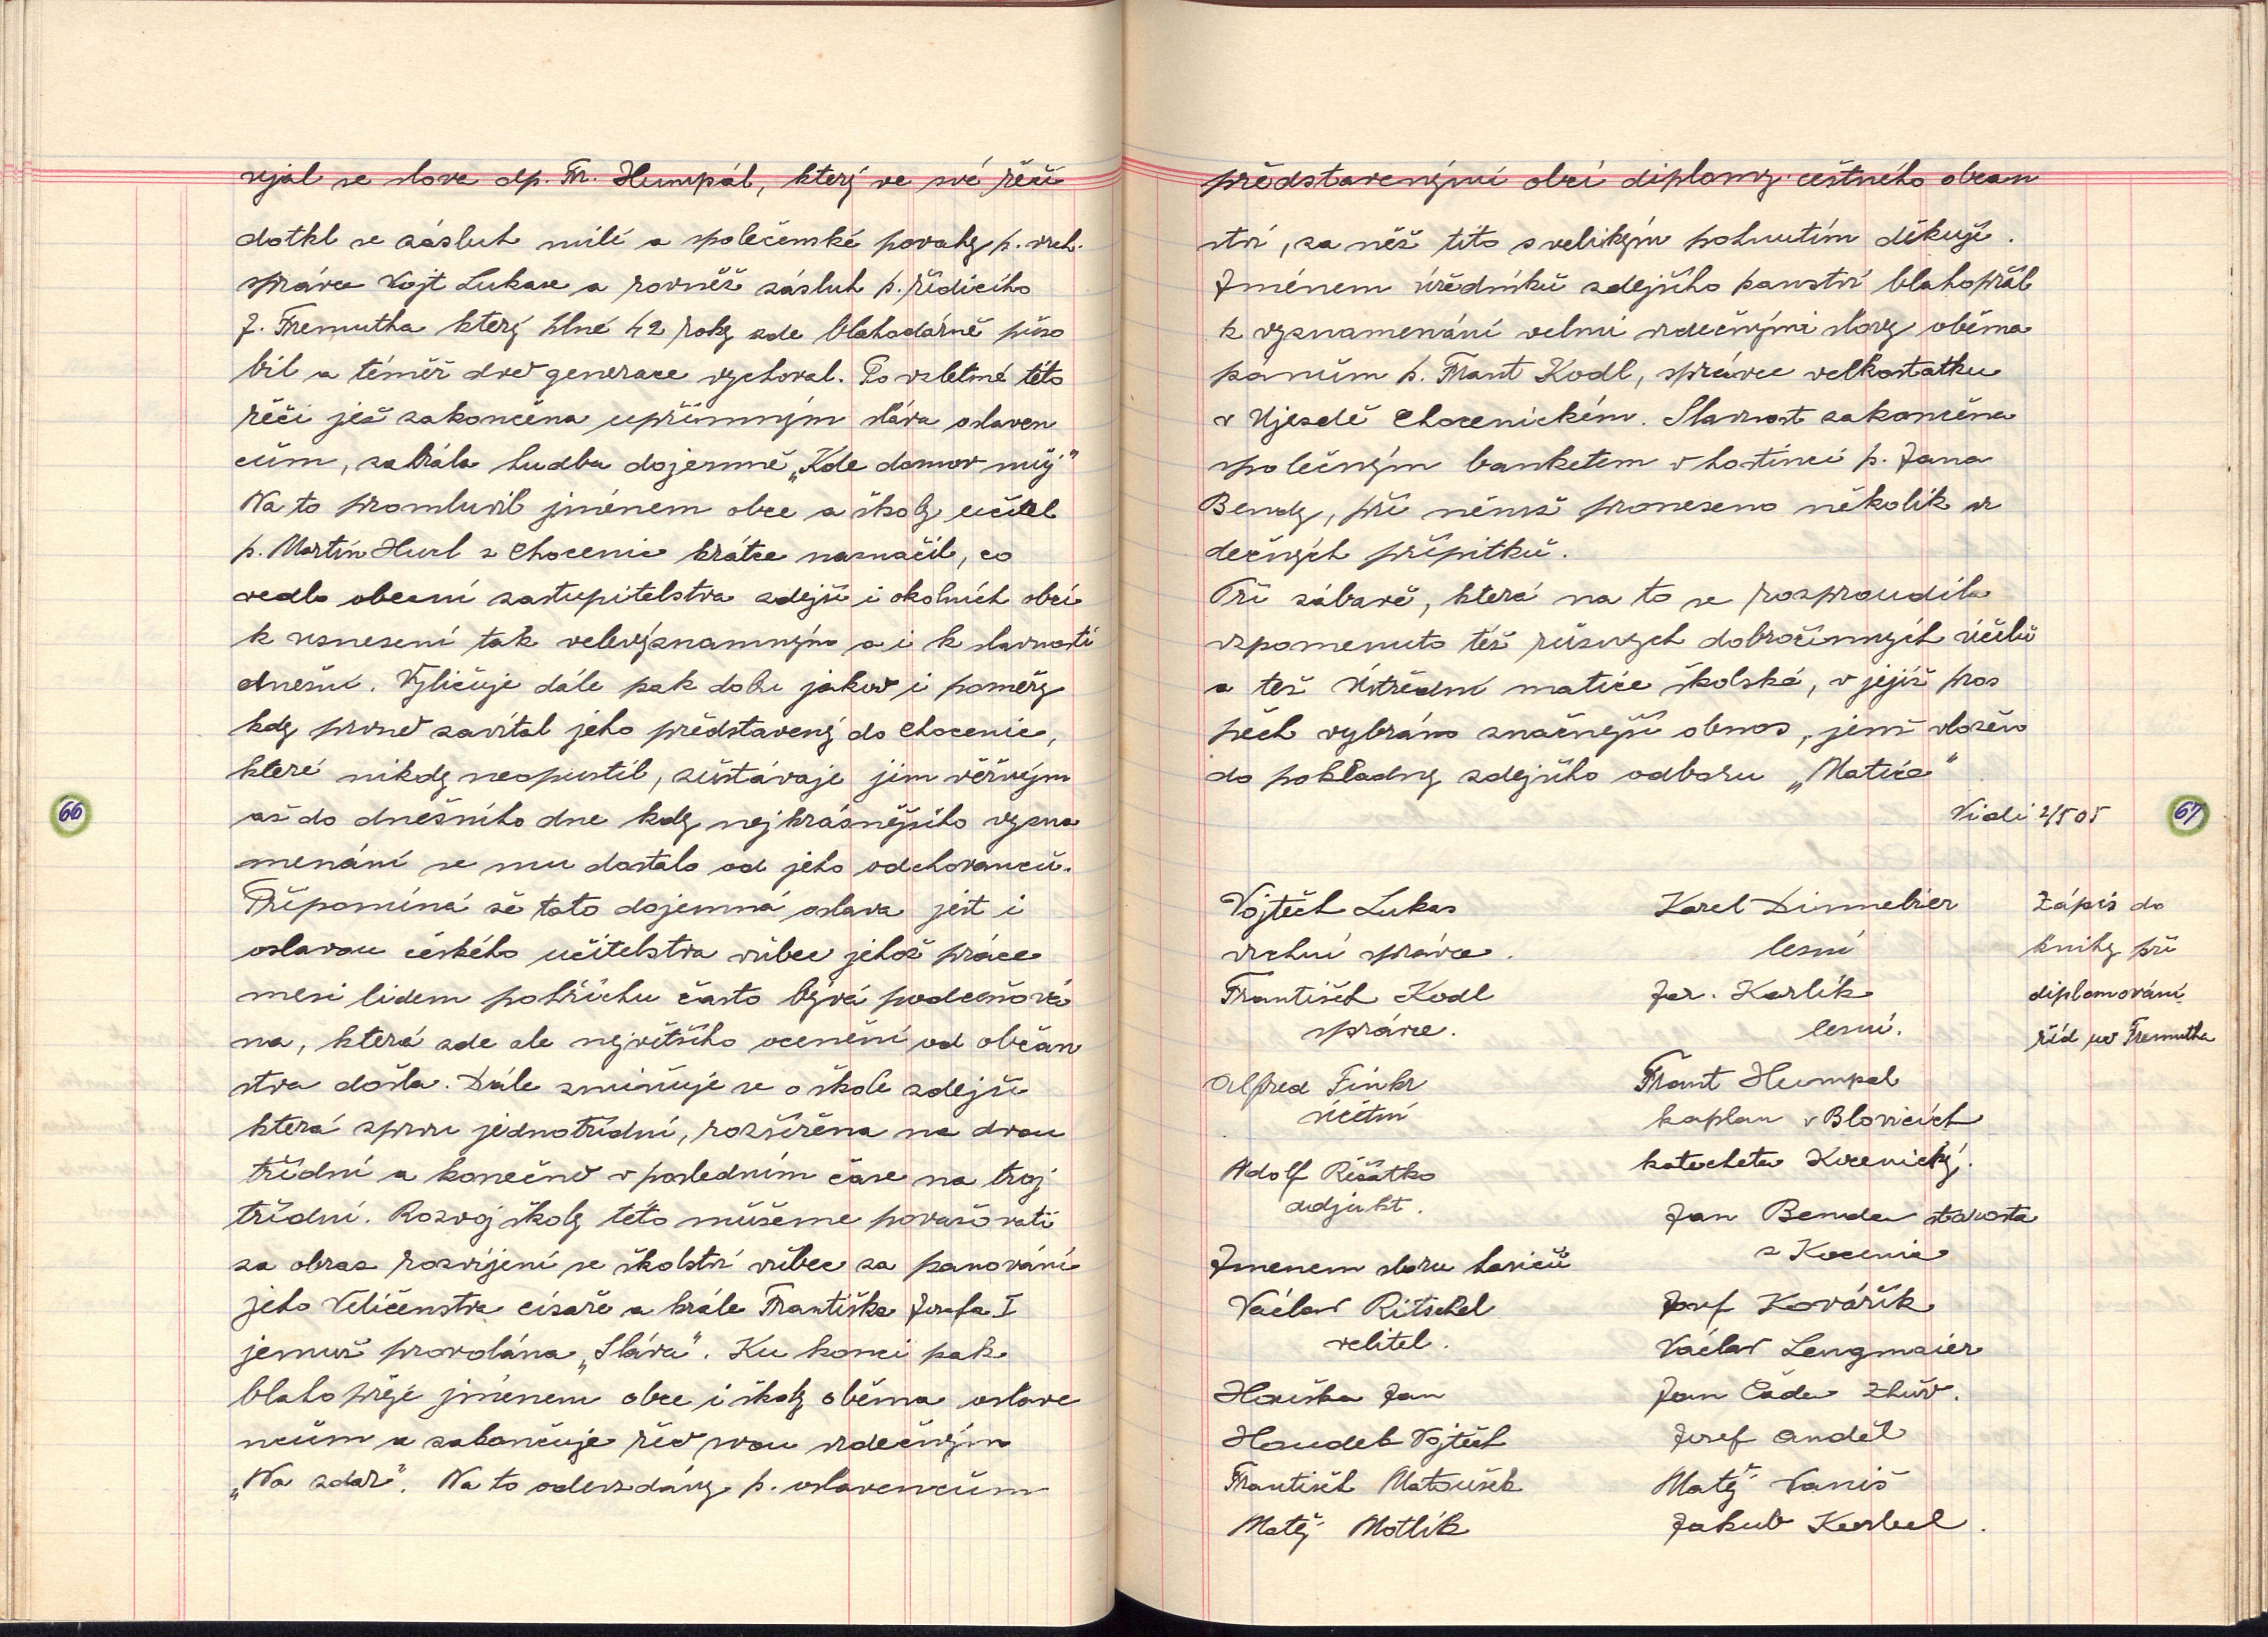 ujal se slova dp. Fr. Humpál, který ve své řeči
dotkl se zásluh milé a společenské povahy p. vrch.
správce Vojt Lukase a rovněž zásluh p. řídícího
J. Fremutha který plné 42 roky zde blahodárně půso
bil a téměř dvě generace vychoval. Po vzletné této
řeči jež zakončena upřímným sláva oslaven
cům, zahrála hudba dojemně „Kde domov můj"
Na to promluvil jménem obce a školy učitel
p. Martin Hurl z Chocenic krátce naznačil, co
vedlo obecní zastupitelstva zdejší i okolních obcí
k usnesení tak velevýznamným a i k slavnosti
dnešní. Vyličuje dále pak dobu jakož i poměry
kdy prvně zavítal jeho představený do Chocenic,
které nikdy neopustil, zůstávaje jim věrným
až do dnešního dne kdy nejkrásnějšího vyzna
menání se mu dostalo od jeho odchovanců.
Připomíná že tato dojemná oslava jest i
oslavou českého učitelstva vůbec jehož práce
mezi lidem pohříchu často bývá podceňová
na, která zde ale největšího ocenění od občan
stva došla. Dále zmiňuje se o škole zdejší
která zprvu jednotřídní, rozšířena na dvou
třídní a konečně v posledním čase na troj
třídní. Rozvoj školy této můžeme považovati
za obraz rozvíjení se školství vůbec za panování
jeho Veličenstva císaře a krále Františka Josefa I
jemuž provolána „Sláva". Ku konci pak
blahopřeje jménem obce i školy oběma oslave
ncům a zakončuje řeč svou srdečným
„Na zdar". Na to odevzdány p. oslavencům
66
představenými obcí diplomy čestného občan
ství, za něž tito s velikým pohnutím děkují.
Jménem úředníků zdejšího panství blahopřál
k vyznamenání velmi srdečnými slovy oběma
pánům p. Frant Kodl, správce velkostatku
v Ujezdě Chocenickém. Slavnost zakončena
společným banketem v hostinci p. Jana
Bendy, při němž proneseno několik sr
dečných přípitků.
Při zábavě, která na to se rozproudila
vzpomenuto též různych dobročinných účelů
a též Ústřední matice školské, v jejíž pros
pěch vybráno značnější obnos, jenž vložen
do pokladny zdejšího odboru „Matice"
Vidi 2/5 05
67
Vojtěch Lukas
vrchní správce.
František Kodl
správce.
Alfred Finkr
účetní
Adolf Řišátko
adjunkt.
Jmenem sboru hasičů
Václav Ritschel
velitel.
Houška Jan
Houdek Vojtěch
František Matoušek
Matěj Motlík
Karel Dinnebier
lesní
Jar. Karlík
lesní.
Frant Humpal
kaplan v Blovicích
katecheta Kocenický.
Jan Benda starosta
z Kocenic
Josef Kovářík
Václav Lengmaier
Jan Čada Zhůř.
Josef Anděl
Matěj Vaniš
Jakub Korbel.
Zápis do
knihy při
diplomování
říd uč Fremutha